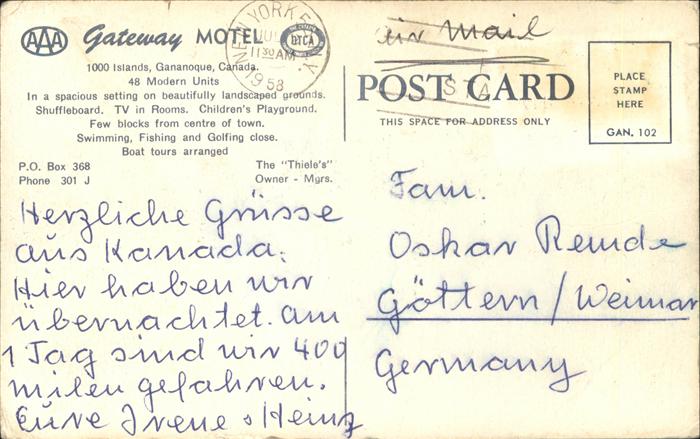 AAA Gateway MOTEL BTCA
1000 Islands, Gananoque, Canada.
48 Modern Units
In a spacious setting on beautifully landscaped grounds.
Shuffleboard. TV in Rooms. Children's Playground.
Few blocks from centre of town.
Swimming, Fishing and Golfing close.
Boat tours arranged
P.O. Box 368 The "Thiele's"
Phone 301 J Owner - Mgrs.
NEW YORK N.Y.
JUL
11 30 AM
1958
Herzliche Grüsse
aus Kanada.
Hier haben wir
übernachtet. Am
1 Tag sind wir 400
milen gefahren.
Eure Irene + Heinz
Air Mail
POST CARD
THIS SPACE FOR ADDRESS ONLY
PLACE
STAMP
HERE
GAN. 102
Fam.
Oskar Remde
Göttern/Weimar
Germany